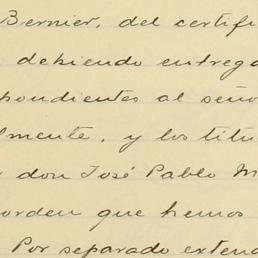 Bernier, del certifi
debiendo entrega
pondientes al seño
lmente, y los titu
don José Pablo M
orden que hemos
Por separado extend